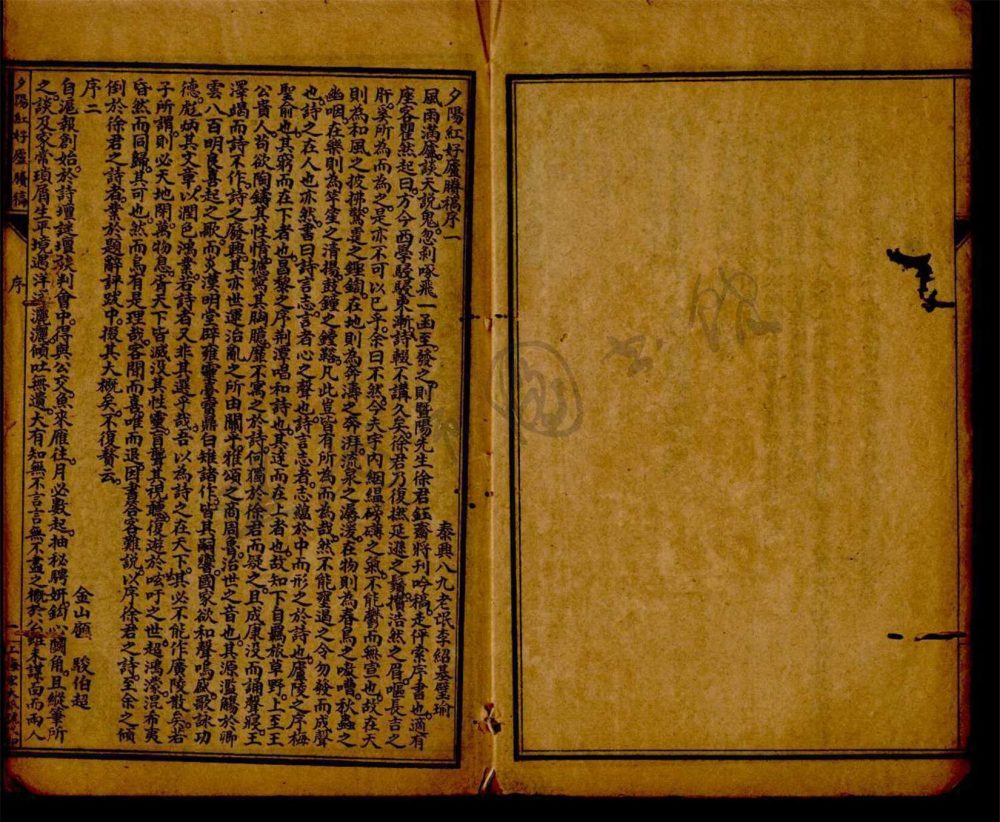 夕陽紅好廬賸稿序一
泰興八九老氓李紹基璧瑜
風雨滿廬談天說鬼忽剥啄飛一函至發之則暨陽先生徐君鈺齋將刊吟稿走伻索序書也適有
座客瞿然起曰方今西學駸駸東漸詩輟不講久矣徐君乃復撚延遜之鬚攢浩然之眉嘔長吉之
肝奚所為而為之是亦不可以已乎余曰不然今夫宇內絪縕磅礴之氣不能鬱而無宣也故在天
則為和風之披拂驚霆之鏗鍧在地則為奔濤之奔湃流泉之潺湲在物則為春鳥之嚶嚶秋蟲之
幽咽在樂則為笙堂之清揚鼓鐘之鏜鞳凡此豈有所為而為哉然不能壅遏之令勿發而成聲
也詩之在人也亦然書曰詩言志言者心之聲也詩言志者志蘊於中而形之於詩也廬陵之序梅
聖俞也其窮而在下者也昌黎之序荆潭唱和詩也其達而在上者也故知下自羈旅草野上至王
公貴人苟欲陶鑄其性情攄寫其胸臆靡不寓之於詩何獨於徐君而疑之且成康沒而誦聲寢王
澤竭而詩不作詩之廢興其亦世運治亂之所由關乎雅頌之商周魯治世之音也其源濫觴於卿
雲八百明良喜起之歌而炎漢明堂辟雍靈臺寶鼎白雉諸作皆其嗣響國家欲和聲鳴盛歌詠功
德彪炳其文章以潤色鴻業若詩者又非其選乎哉吾以為詩之在天下其必不能作廣陵散矣若
子所謂則必天地閉萬物息青天下皆滅沒其性靈盲聾其視聽復遊於呿吁之世超鴻濛混希夷
昏然而同歸其可也然而烏有是理哉客聞而喜唯而退因書答客難說以序徐君之詩至余之傾
倒於徐君之詩者業於題辭評跋中掇其大概矣不復贅云
序二
金山顧 駿伯超
自滬報創始於詩壇謎壇談判會中得與公交魚來雁往月必數起抽秘騁妍鉤心鬭角且縱筆所
之談及家常瑣屑生平境遇洋洋灑灑傾吐無遺大有知無不言言無不盡之概於公雖未謀面而兩人
夕陽紅好廬賸稿
序
一